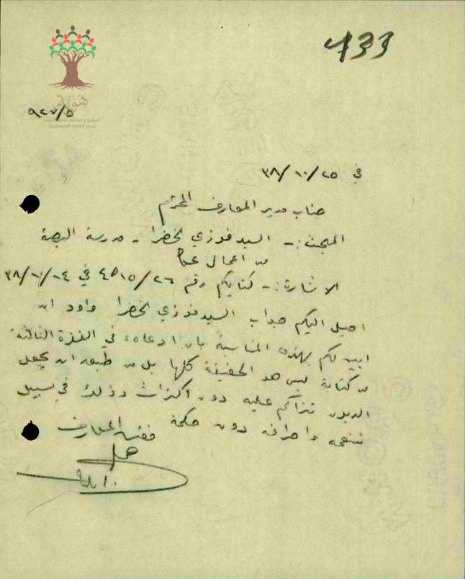 433
هوية
٩٢٧/٥
في ٢٥/١٠/٣٨
جناب مدير المعارف المحترم
المبحث :- السيد فوزي الخضرا - مدرسة البصة
من اعمال عكا
الاشارة :- كتابكم رقم في ٣٨/١٠/١٤
احيل اليكم جواب السيد فوزي الخضرا واود ان
ابين لكم بهذه المناسبة بان ادعاءه في الفقرة الثالثة
من كتابه ليس هو الحقيقة كلها بل من طبعه ان يجعل
الديون تتراكم عليه دون اكتراث وذلك في سبيل
تنعمه واسرافه دون حكمة
مفتش المعارف